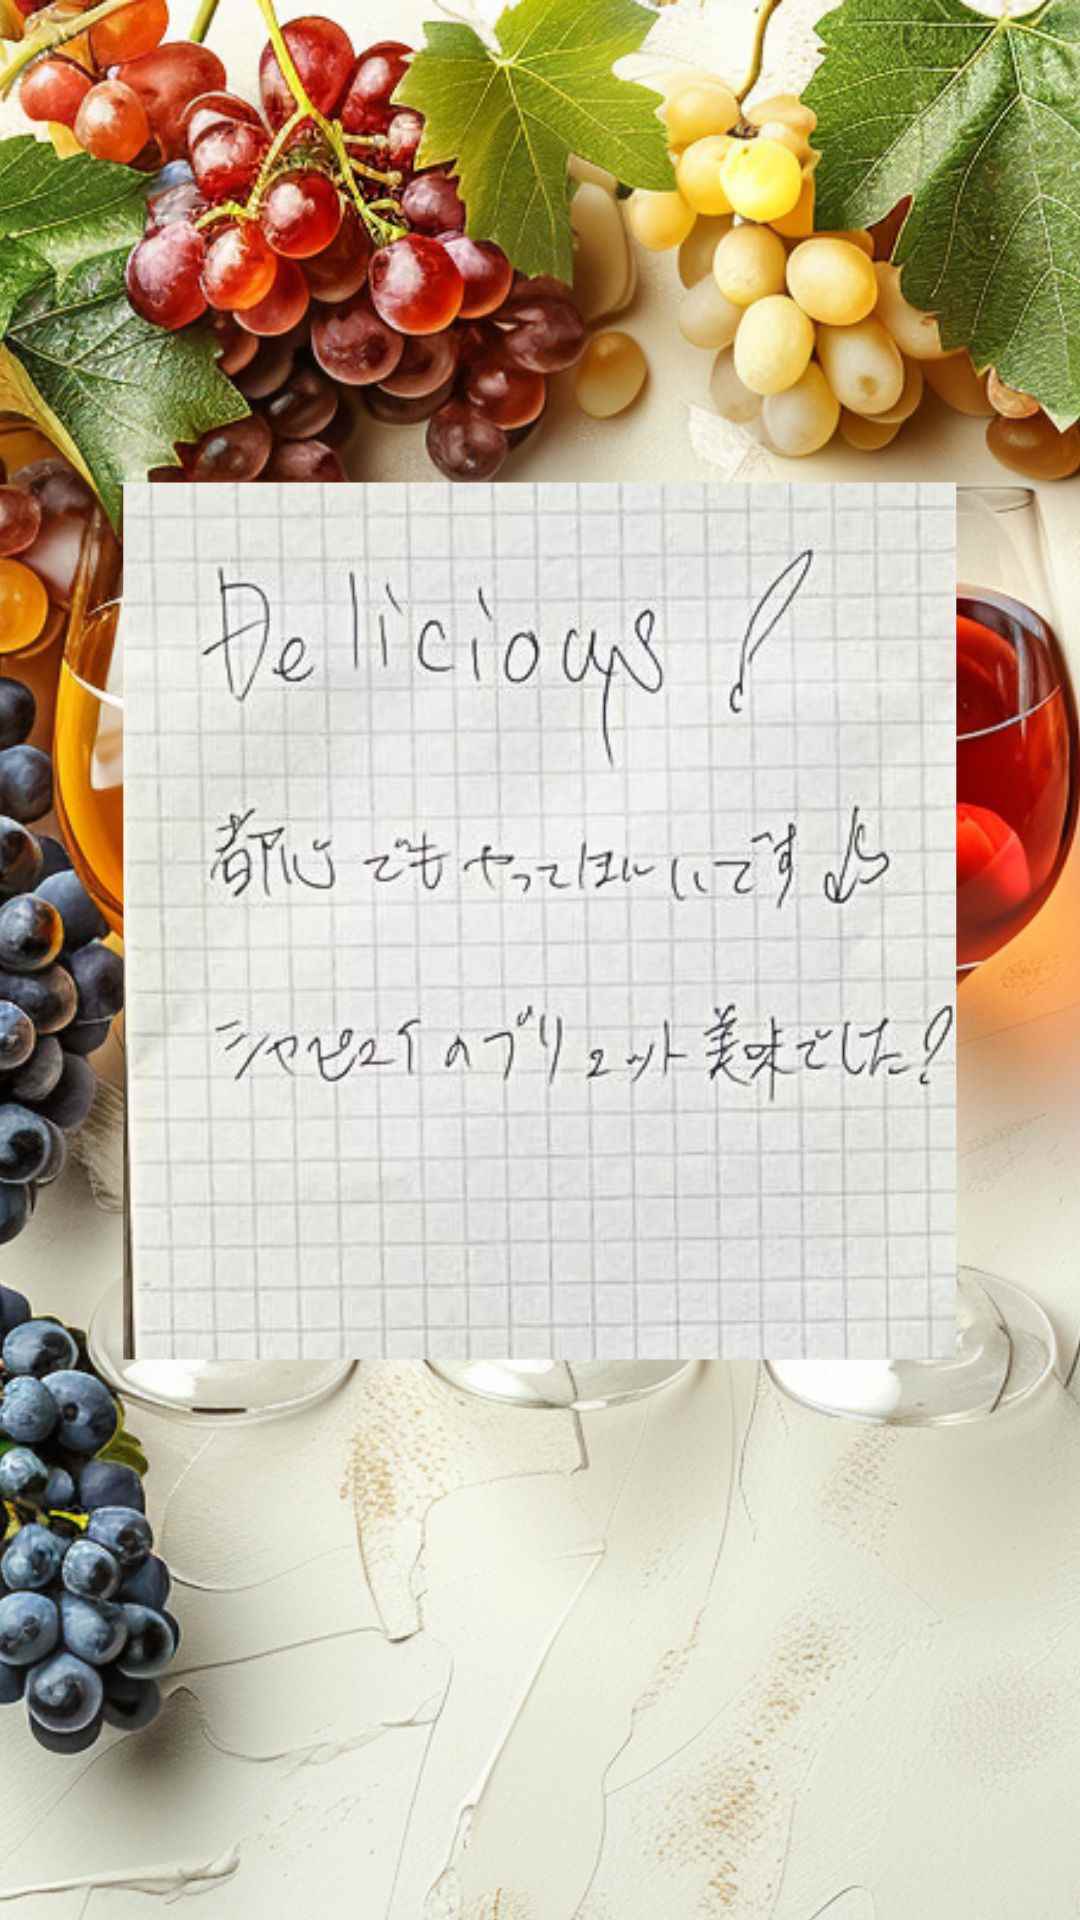 Delicious!
都心でもやってほしいです♪
シャピュイのブリュット美味でした!